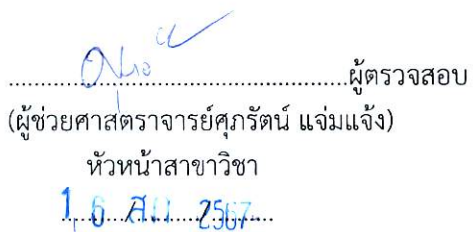 ผู้ตรวจสอบ
(ผู้ช่วยศาสตราจารย์ศุภรัตน์ แจ่มแจ้ง)
หัวหน้าสาขาวิชา
1 6 / / 2567